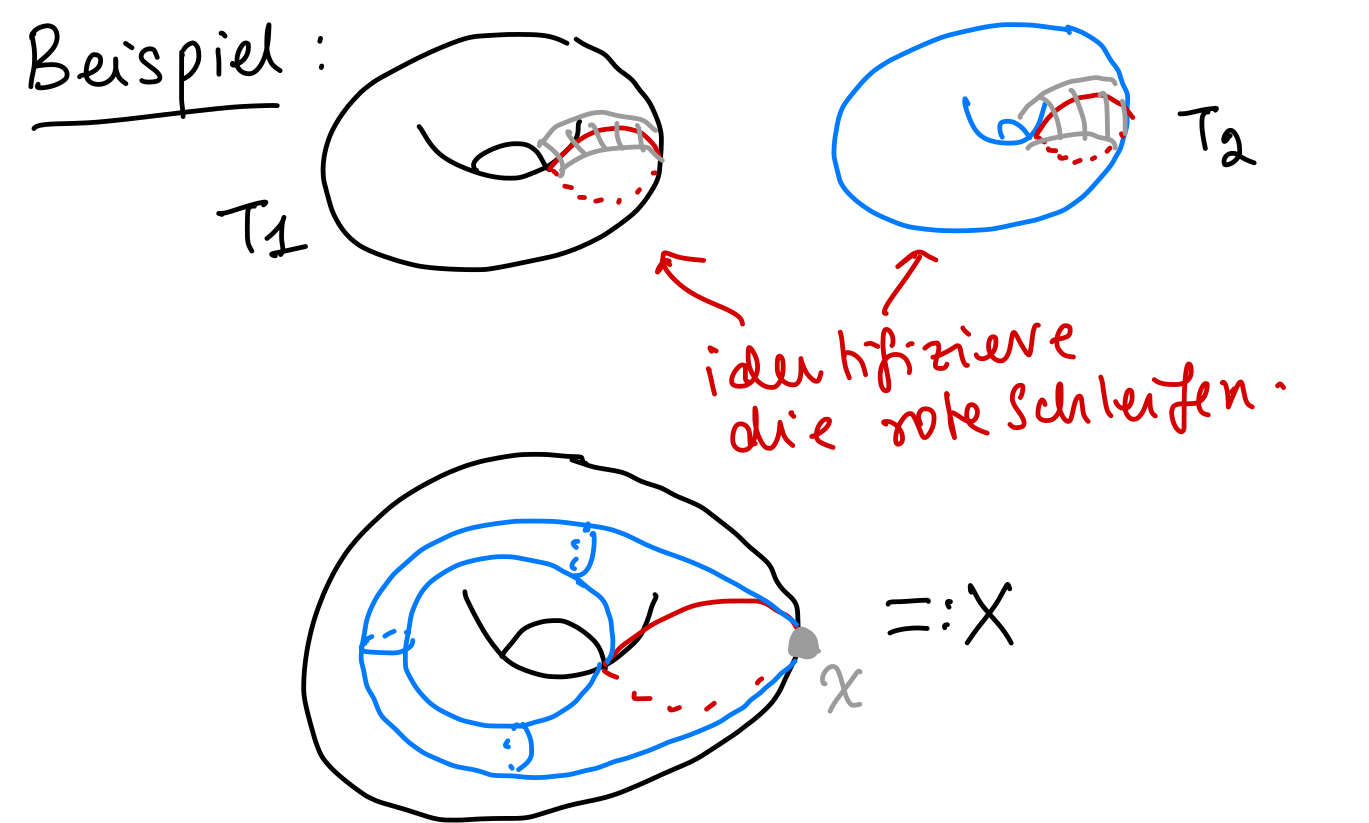 Beispiel:
T1
T2
identifiziere
die rote Schleifen.
=: X
x